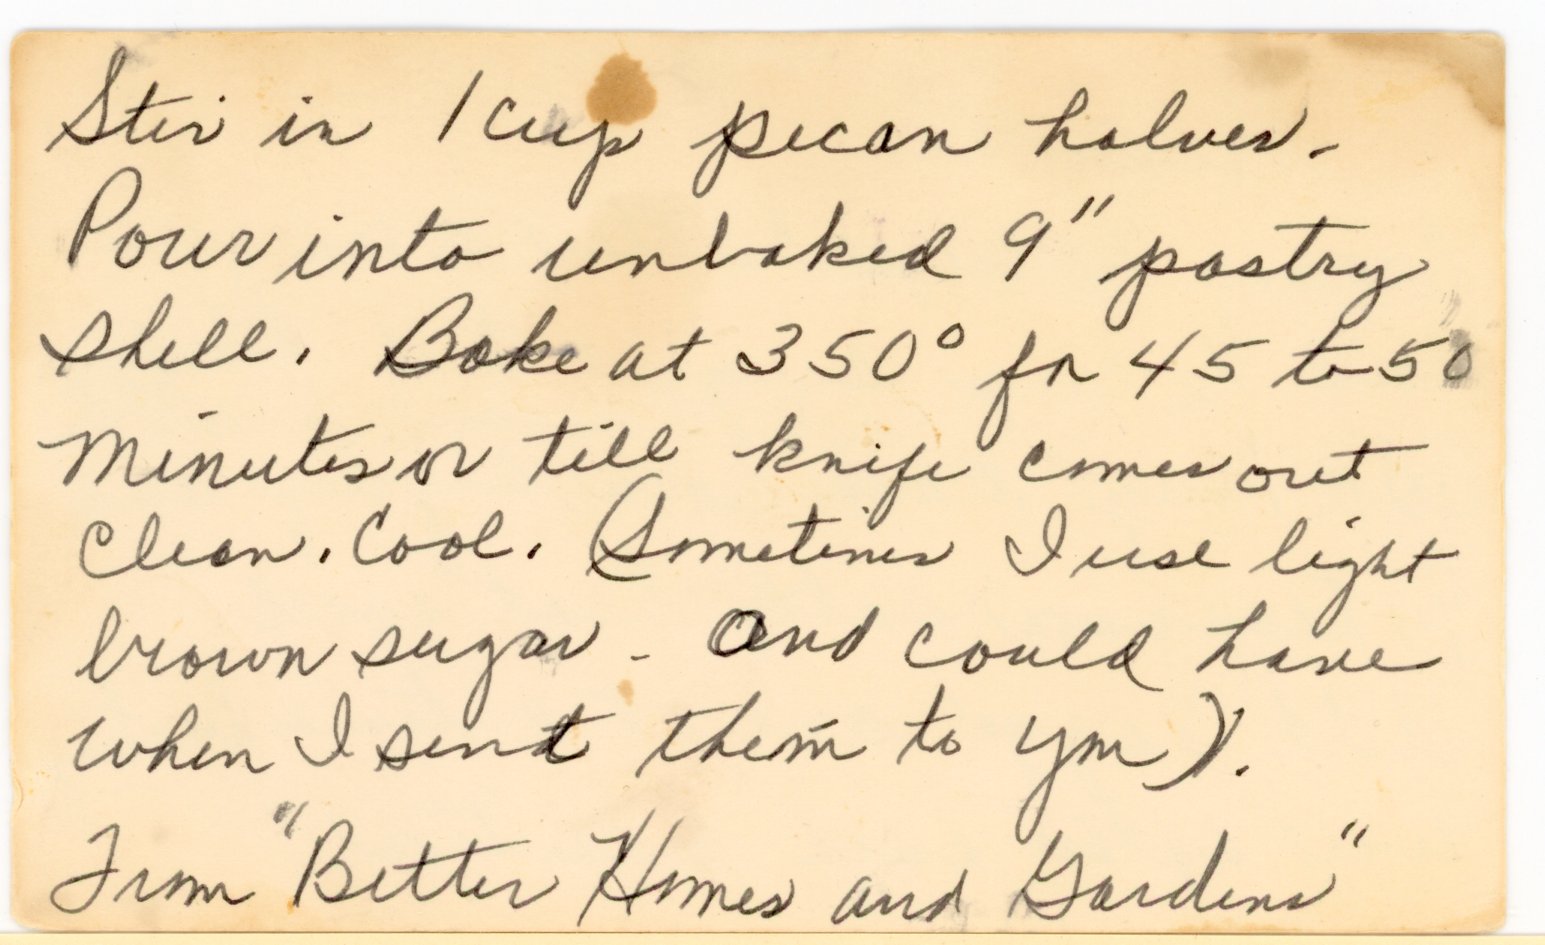 Stir in 1 cup pecan halves.
Pour into unbaked 9" pastry
shell. Bake at 350° for 45 to 50
minutes or till knife comes out
clean. Cool. (Sometimes I use light
brown sugar - and could have
when I sent them to you).
From "Better Homes and Gardens"